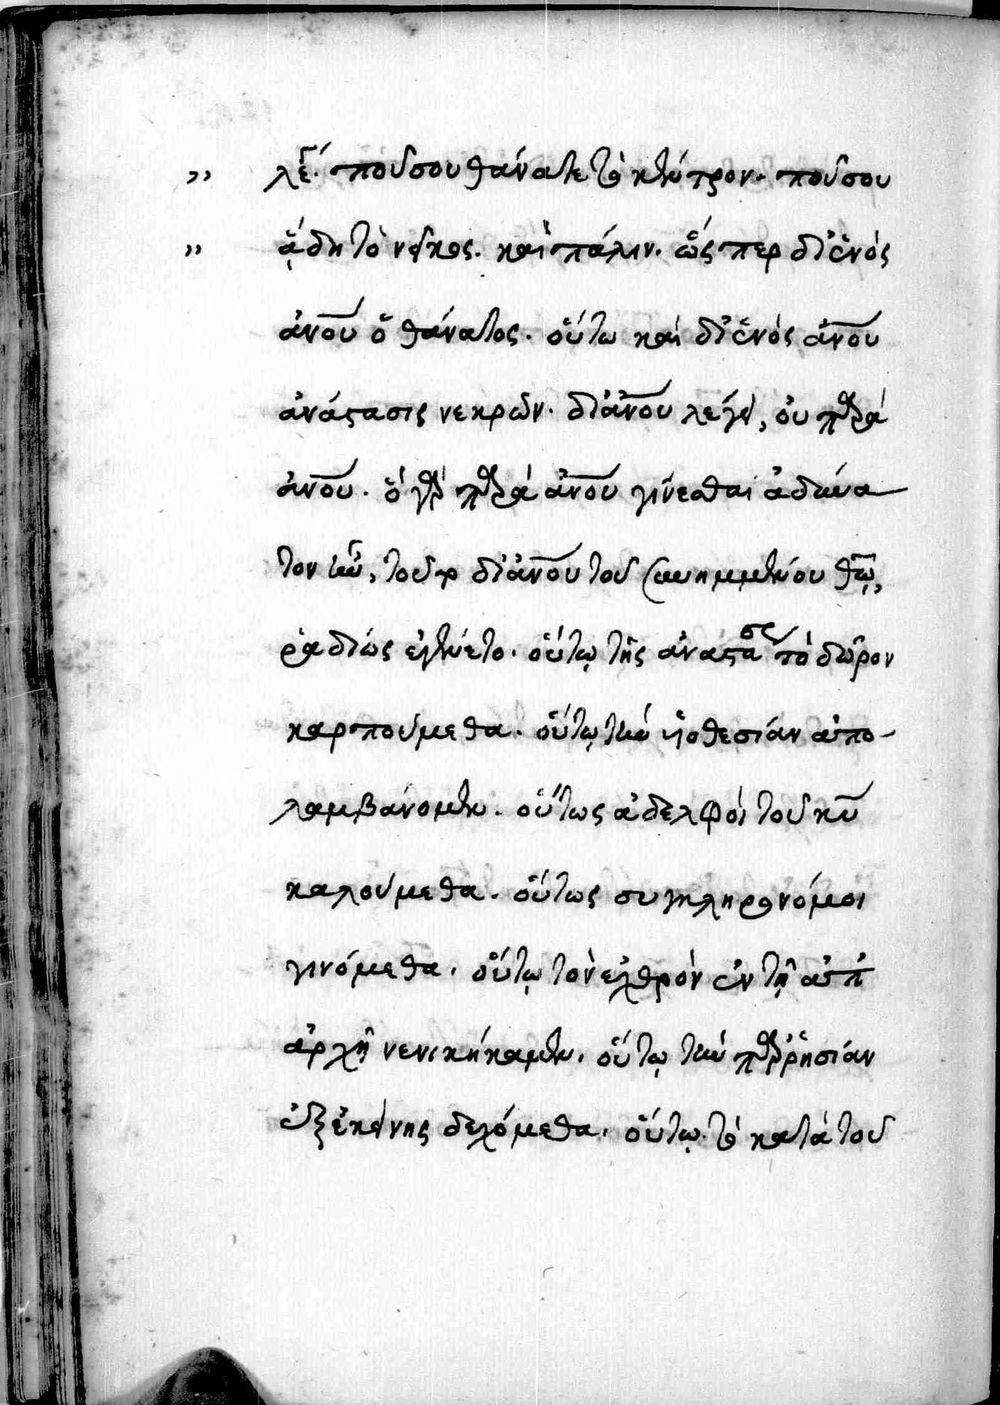 „ λέγει. ποῦ σου θάνατε τὸ κέντρον. ποῦ σου
„ ἅδη τὸ νῖκος. καὶ πάλιν. ὥς περ δι' ἑνὸς
ἀνου ὁ θάνατος. οὕτω καὶ δι' ἑνὸς ἀνου
ἀνάστασις νεκρῶν. δι' ἀνου λέγει, οὐ παρὰ
ἀνου. ὁ γὰρ παρὰ ἀνου γίνεσθαι ἀδύνα
τον ἦν, τοῦτο δι' ἀνου τοῦ συνημμένου θω,
ῥαδίως ἐγένετο. οὕτω τῆς ἀναστάσεως τὸ δῶρον
καρπούμεθα. οὕτω τὴν υἱοθεσίαν ἀπο-
λαμβάνομεν. οὕτως ἀδελφοὶ τοῦ κυ
καλούμεθα. οὕτως συγκληρονόμοι
γινόμεθα. οὕτω τὸν ἐχθρὸν ἐν τῇ ἀπ'
ἀρχῇ νενικήκαμεν. οὕτω τὴν παρρησίαν
ἐξ ἐκείνης δεχόμεθα. οὕτω τὸ κατὰ τοῦ